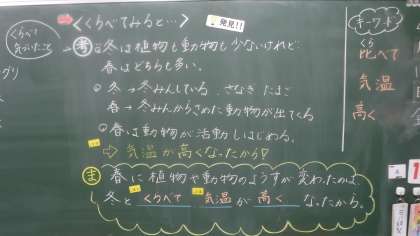 くらべて
気づいたこと
グリ
<くらべてみると…>
発見!!
考 ◎冬は植物も動物も少ないけれど
春はどちらも多い。
◎冬→冬みんしている さなぎ たまご
春→冬みんからさめた動物が出てくる
◎春は動物が活動しはじめる。
⇨ 気温が高くなったから!
ま 春に植物や動物のようすが変わったのは、
冬とくらべて 気温が 高く なったから。
キーワード
くら
比べて
気温
高く